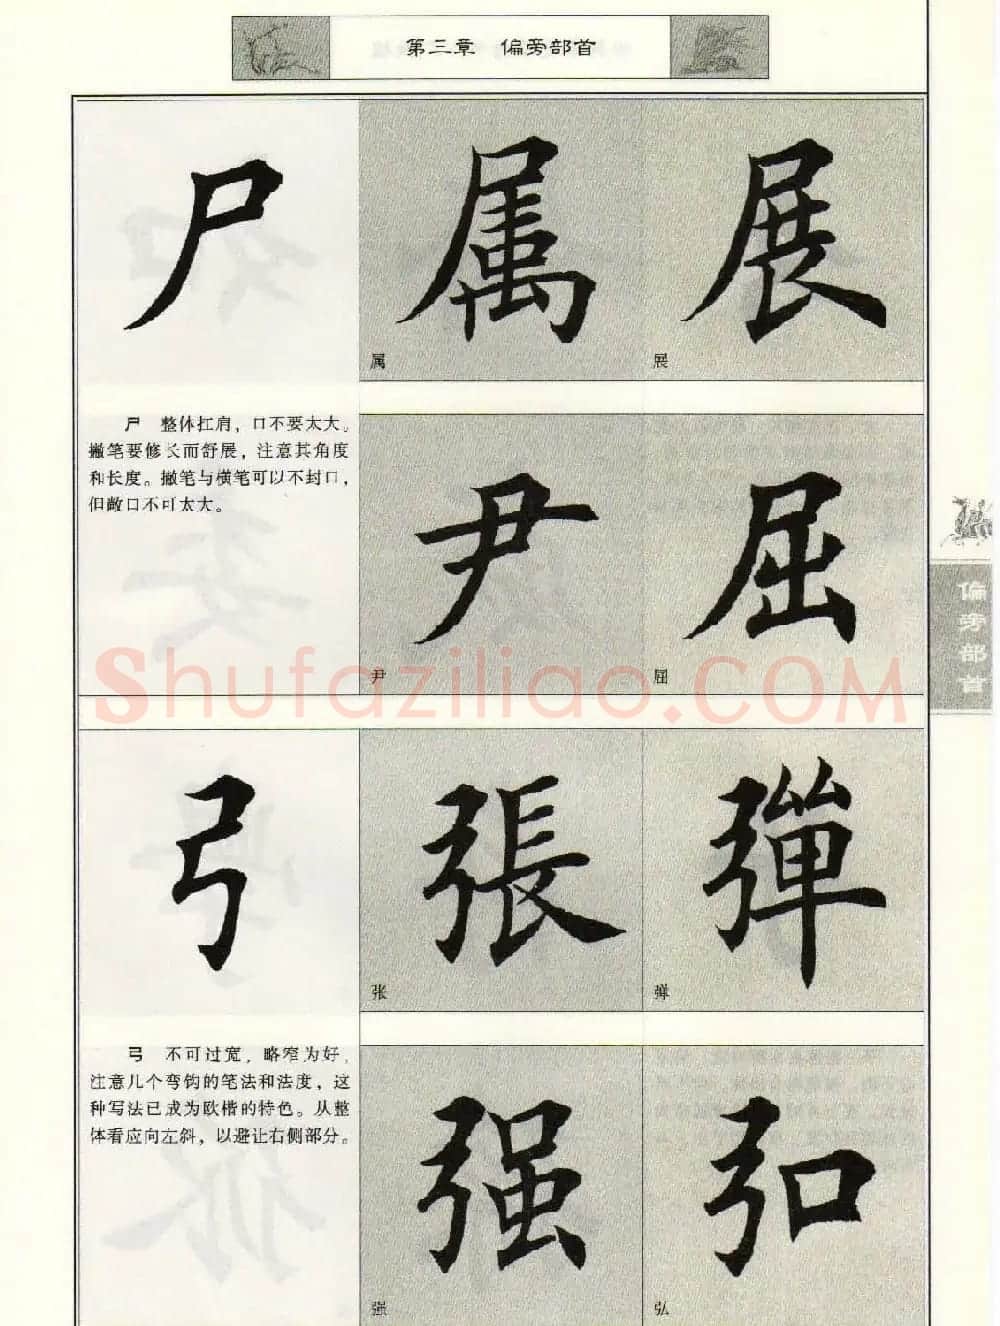 第三章 偏旁部首
尸
属
展
属
展
尸 整体扛肩，口不要太大。
撇笔要修长而舒展，注意其角度
和长度。撇笔与横笔可以不封口，
但敞口不可太大。
尹
屈
尹
屈
偏旁部首
shufaziliao.COM
弓
張
彈
张
弹
弓 不可过宽，略窄为好，
注意几个弯钩的笔法和法度，这
种写法已成为欧楷的特色。从整
体看应向左斜，以避让右侧部分。
强
弘
强
弘